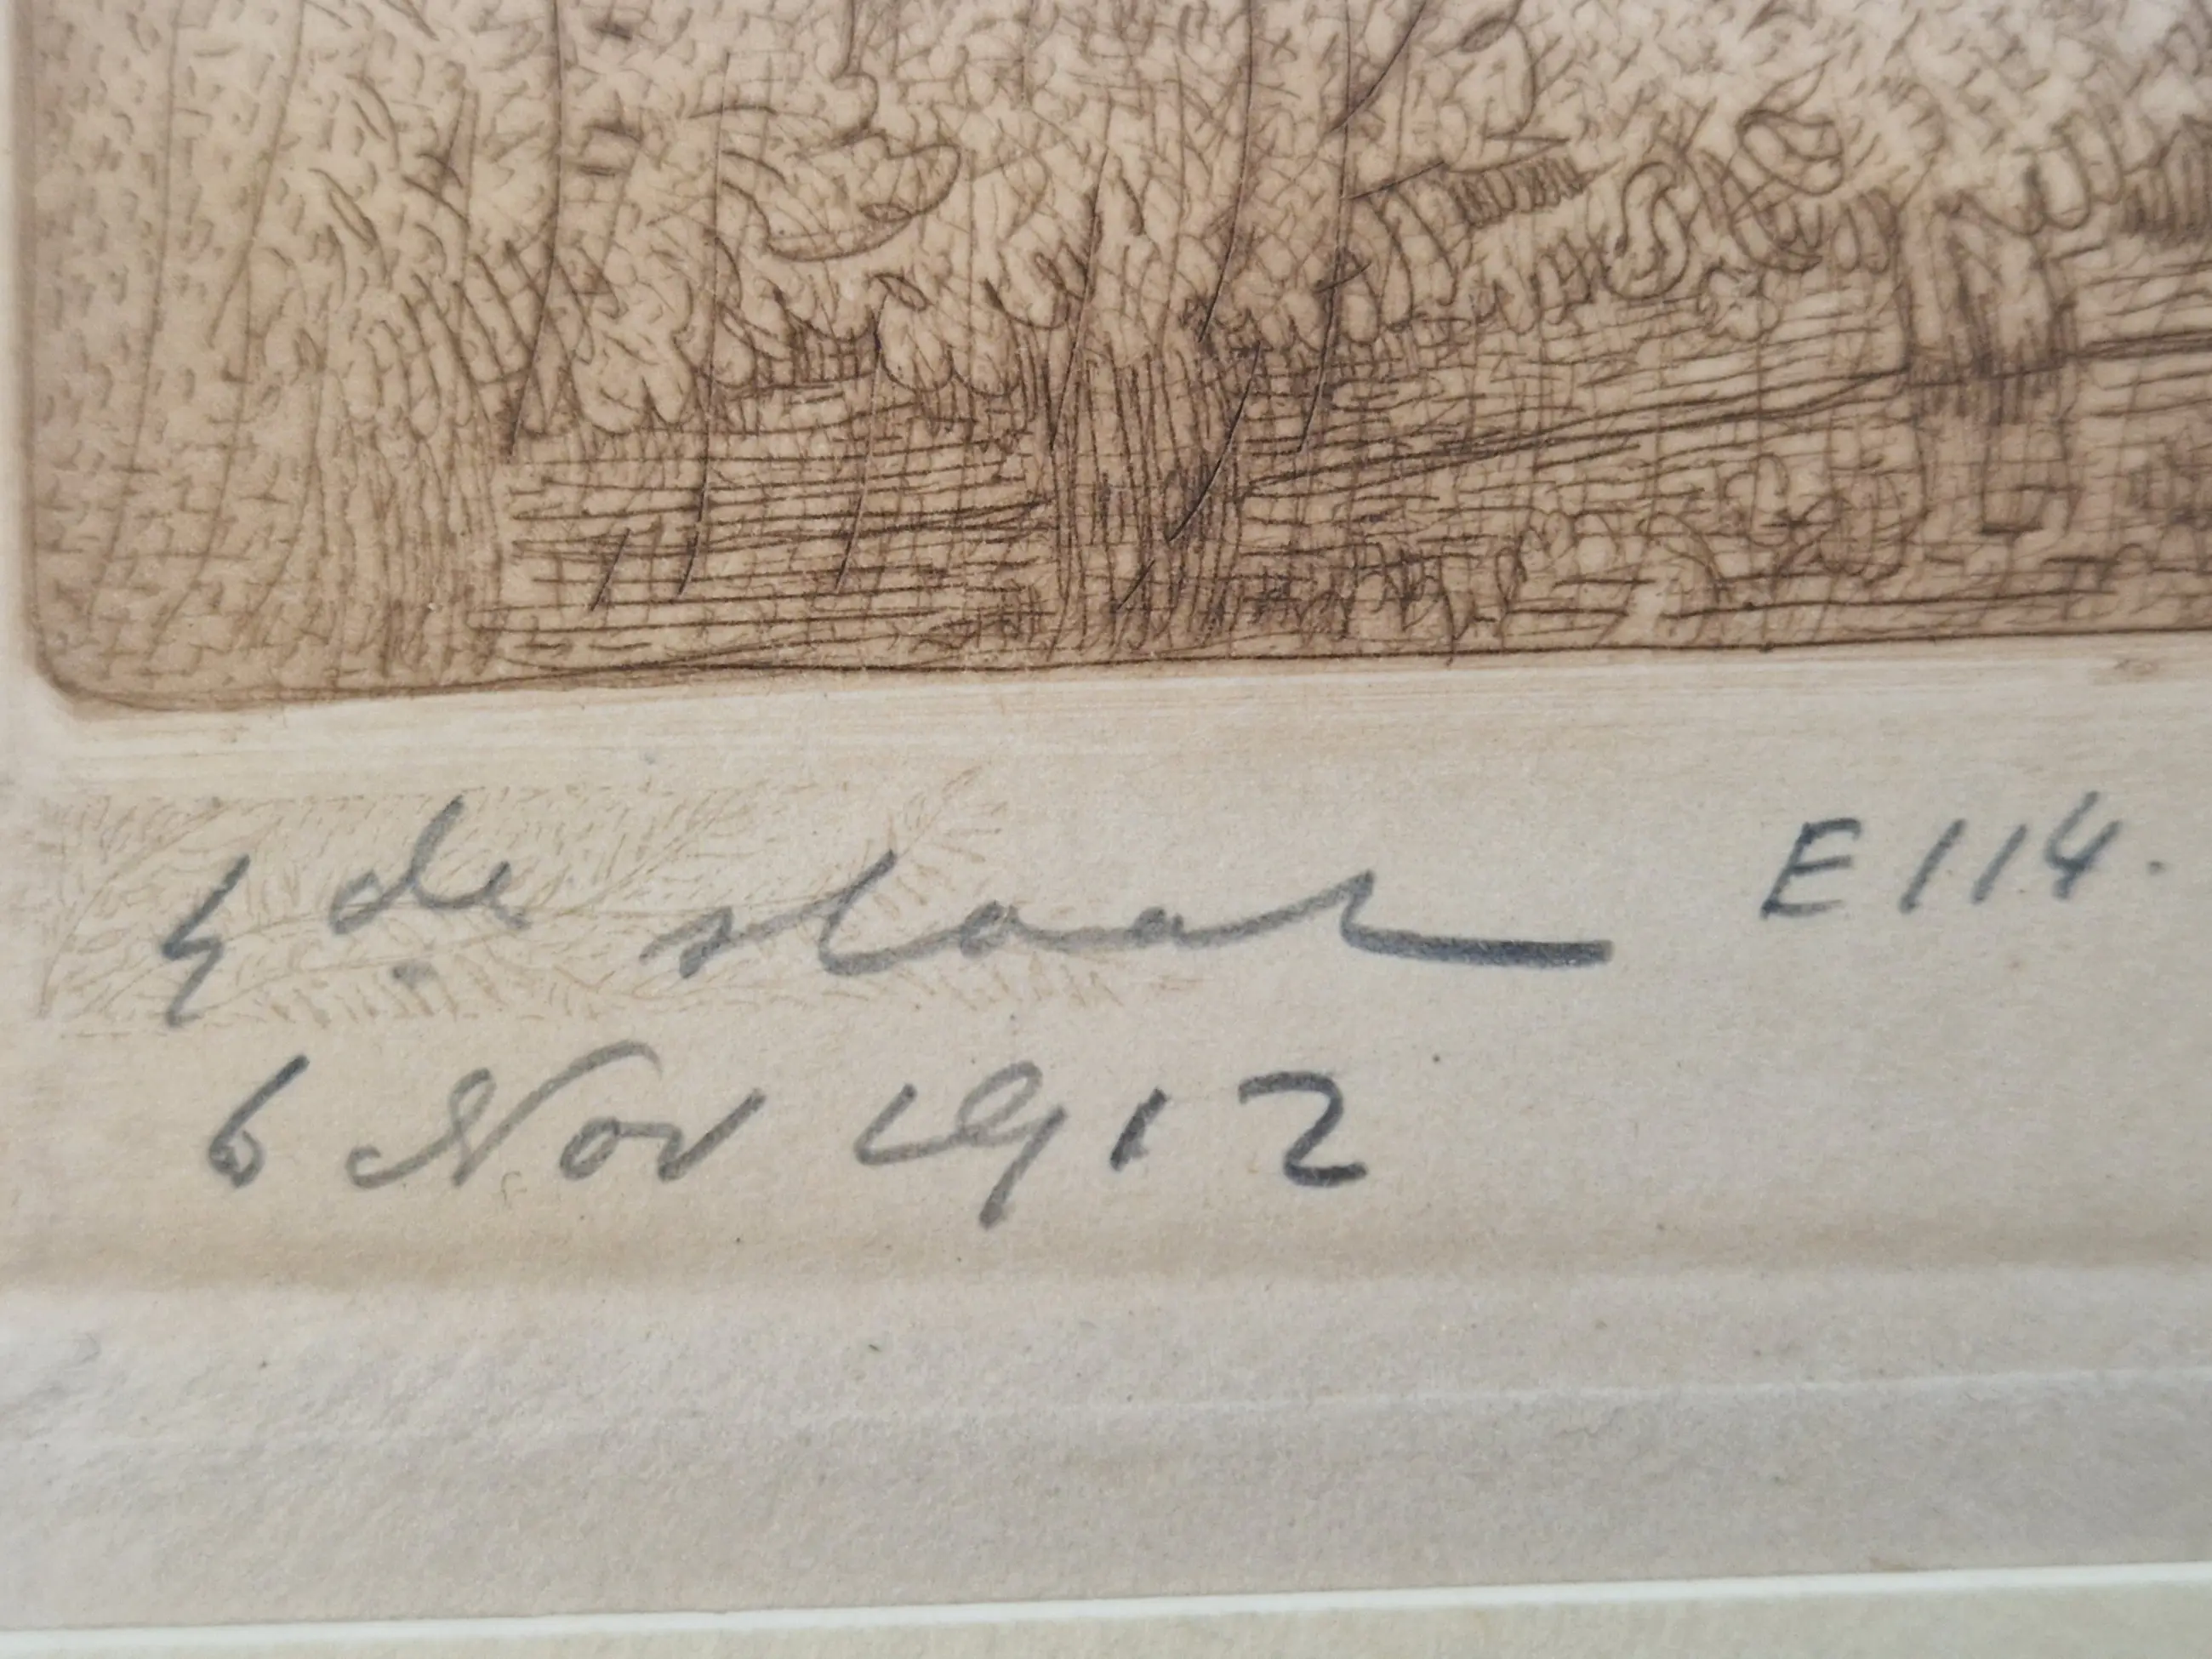 4de staat E 114.
6 Nov 1912